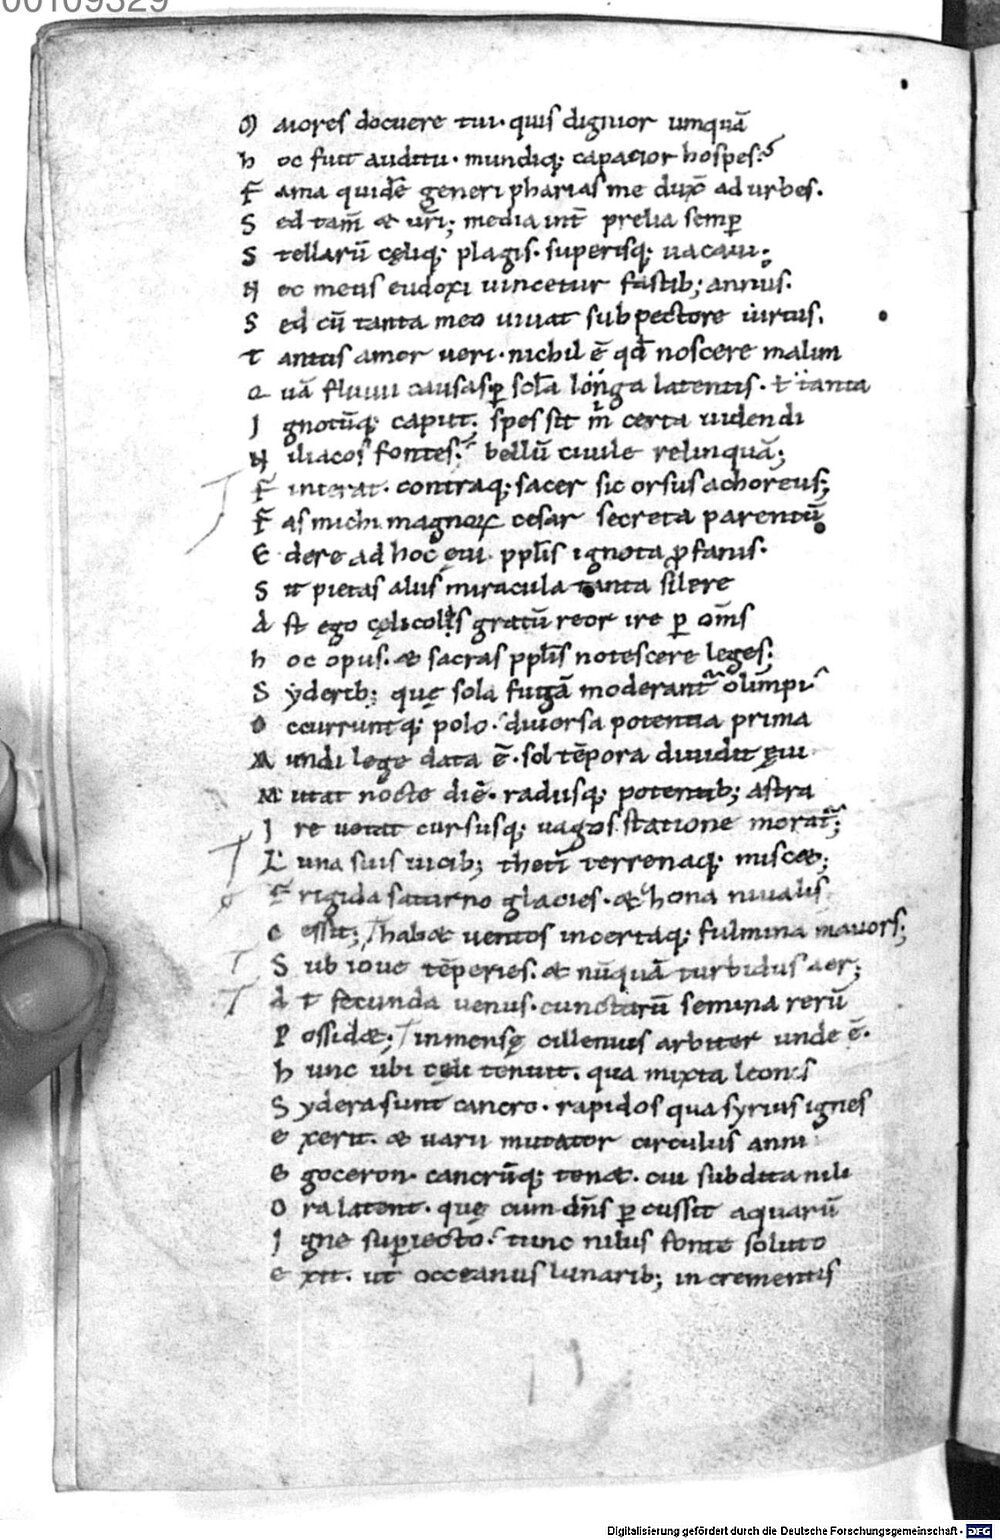 00109329
M aiores docuere tui· quis dignior umquā
h oc fuit auditu· mundiq; capacior hospes:
F ama quidē generi pharias me dux̄ ad urbes.
S ed tam̄ & ur̄i; media int̄ prelia semꝑ
S tellarū cęliq; plagis· superisq; uacaui;
N ec meus eudoxi uincetur fastib; annus.
S ed cū tanta meo uiuat sub pectore uirtus.
T antus amor ueri· nichil ē qđ noscere malim
Q uā fluuii causas ꝑ sc̄la longa latentis· ł tanta
I gnotūq; caput; spes sit m̄ certa uidendi
N iliacos fontes; bellū ciuile relinquā;
F inierat· contraq; sacer sic orsus achoreus;
F as michi magnoꝝ cesar secreta parentū
E dere ad hoc ęui ppl̄is ignota ꝓfanis·
S it pietas aliis miracula tanta silere
A st ego cęlicolis gratū reor ire ꝑ om̄s
h oc opus· & sacras ppl̄is notescere leges;
S yderib; quę sola fugā moderant̄ olimpi
O ccurruntq; polo· diuersa potentia prima
M undi lege data ē· sol tēpora diuidit ęui
M utat nocte diē· radiisq; potentib; astra
I re uetat cursusq; uagos statione morat̄;
L una suis uicib; theti terrenaq; misc&;
F rigida saturno glacies· & zona niualis
C essit; habæ uentos incertaq; fulmina mauors;
S ub ioue tēperies· & nūquā turbidus aer;
A t fecunda uenus· cunctarū semina rerū
P ossidæ; inmensę cillenius arbiter unde ē·
h unc ubi cęli tenuit· qua mixta leonis
S ydera sunt cancro· rapidos qua syrius ignes
E xerit· & uarii mutator circulus anni
E goceron· cancrūq; ten&· cui subdita nili
O ra latent· quę cum dn̄s ꝑcussit aquarū
I gne suꝑiecto· tunc nilus fonte soluto
E xit· ut occeanus lunarib; incrementis
Digitalisierung gefördert durch die Deutsche Forschungsgemeinschaft - DFG